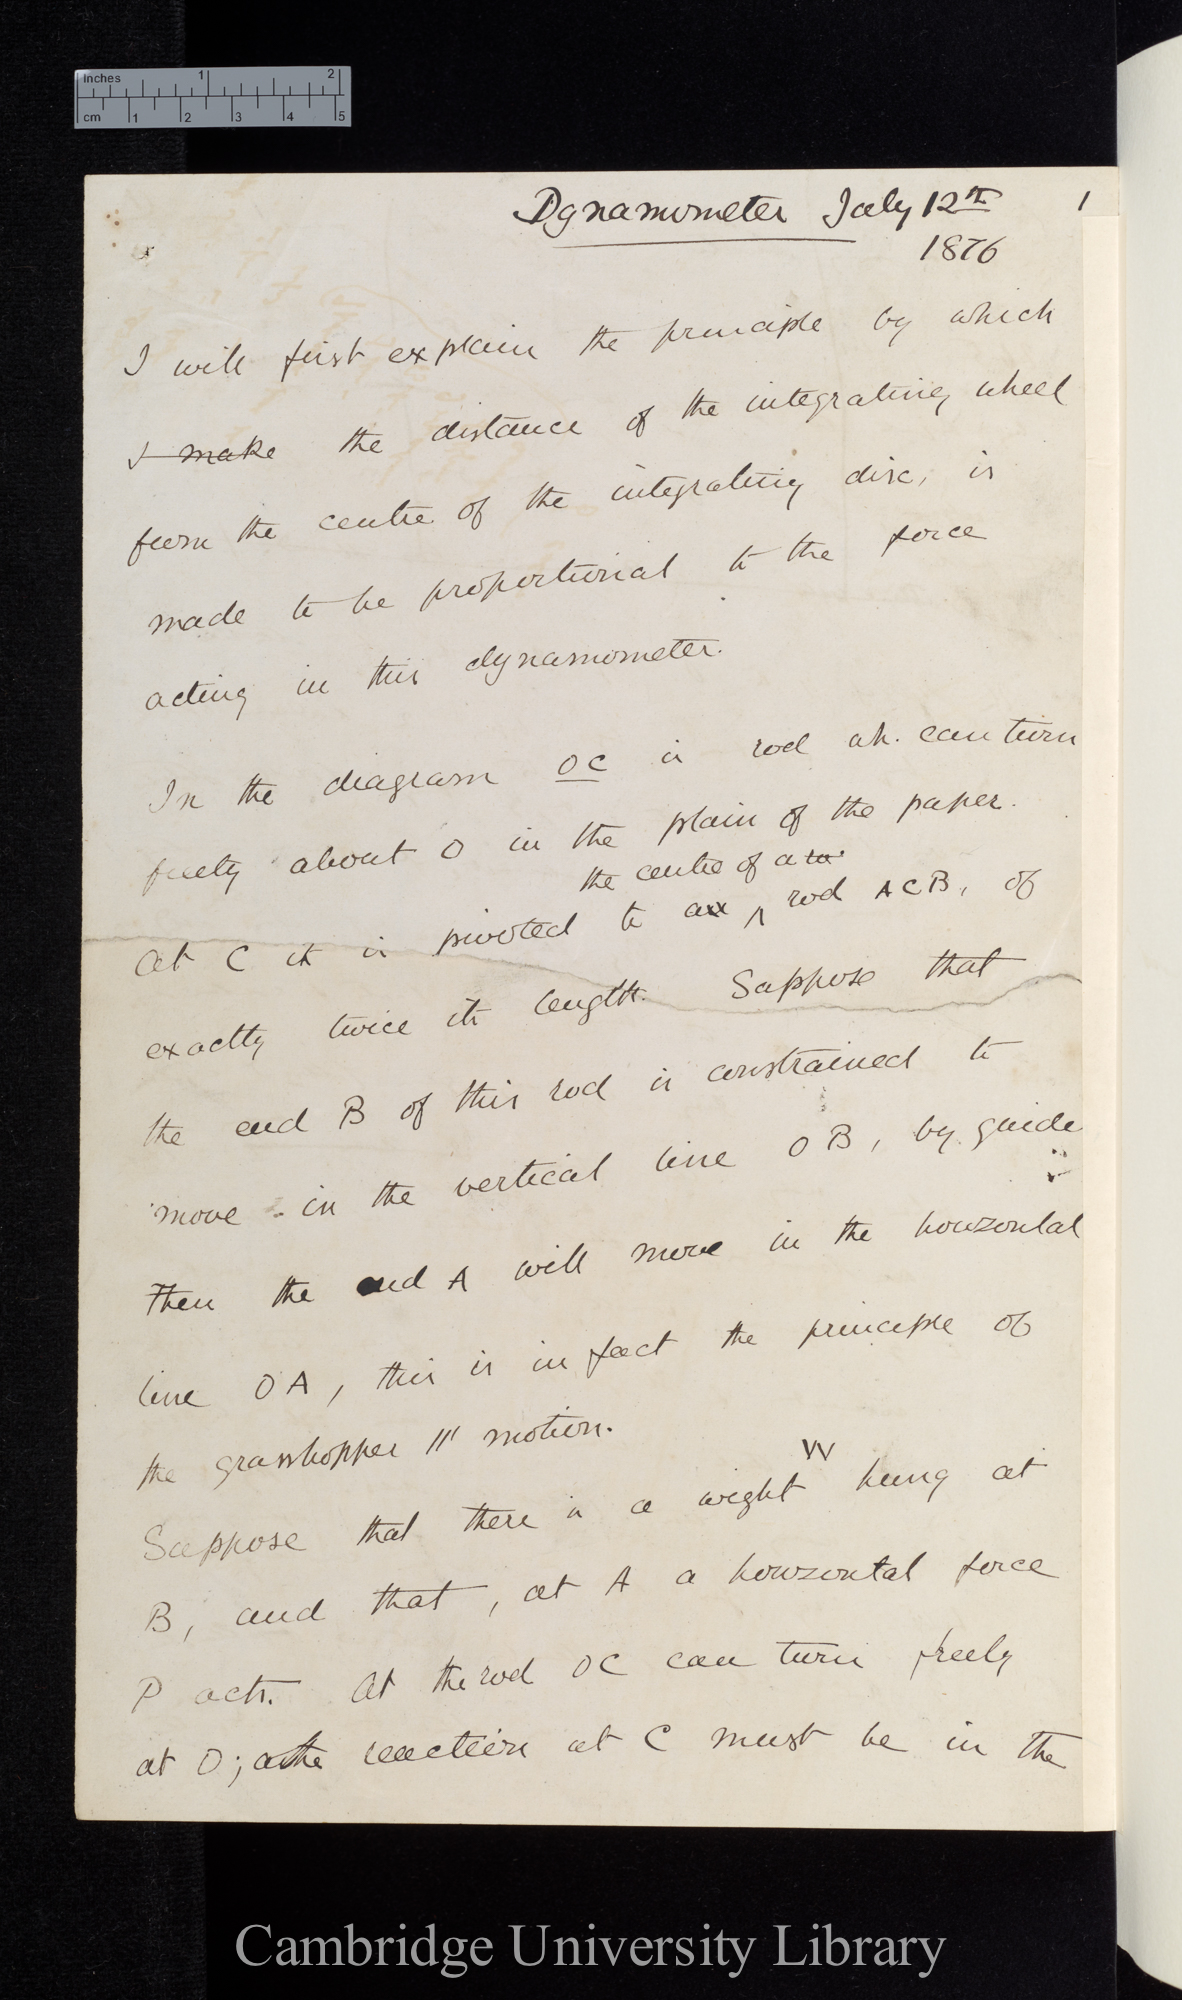 inches 1 2
cm 1 2 3 4 5
Dynamometer July 12th 1
1876
I will first explain the principle by which
I make the distance of the integrating wheel
from the centre of the integrating disc, is
made to be proportional to the force
acting in this dynamometer.
In the diagram OC is rod wh. can turn
freely about O in the plain of the paper.
the centre of a
At C it is pivoted to a ^ rod ACB, of
exactly twice its length. Suppose that
the end B of this rod is constrained to
move in the vertical line OB, by guide
Then the end A will move in the horizontal
line OA, this is in fact the principle of
the grasshopper ||l motion.
W
Suppose that there is a wight hung at
B, and that, at A a horizontal force
P acts. At the rod OC can turn freely
at O; the reaction at C must be in the
Cambridge University Library